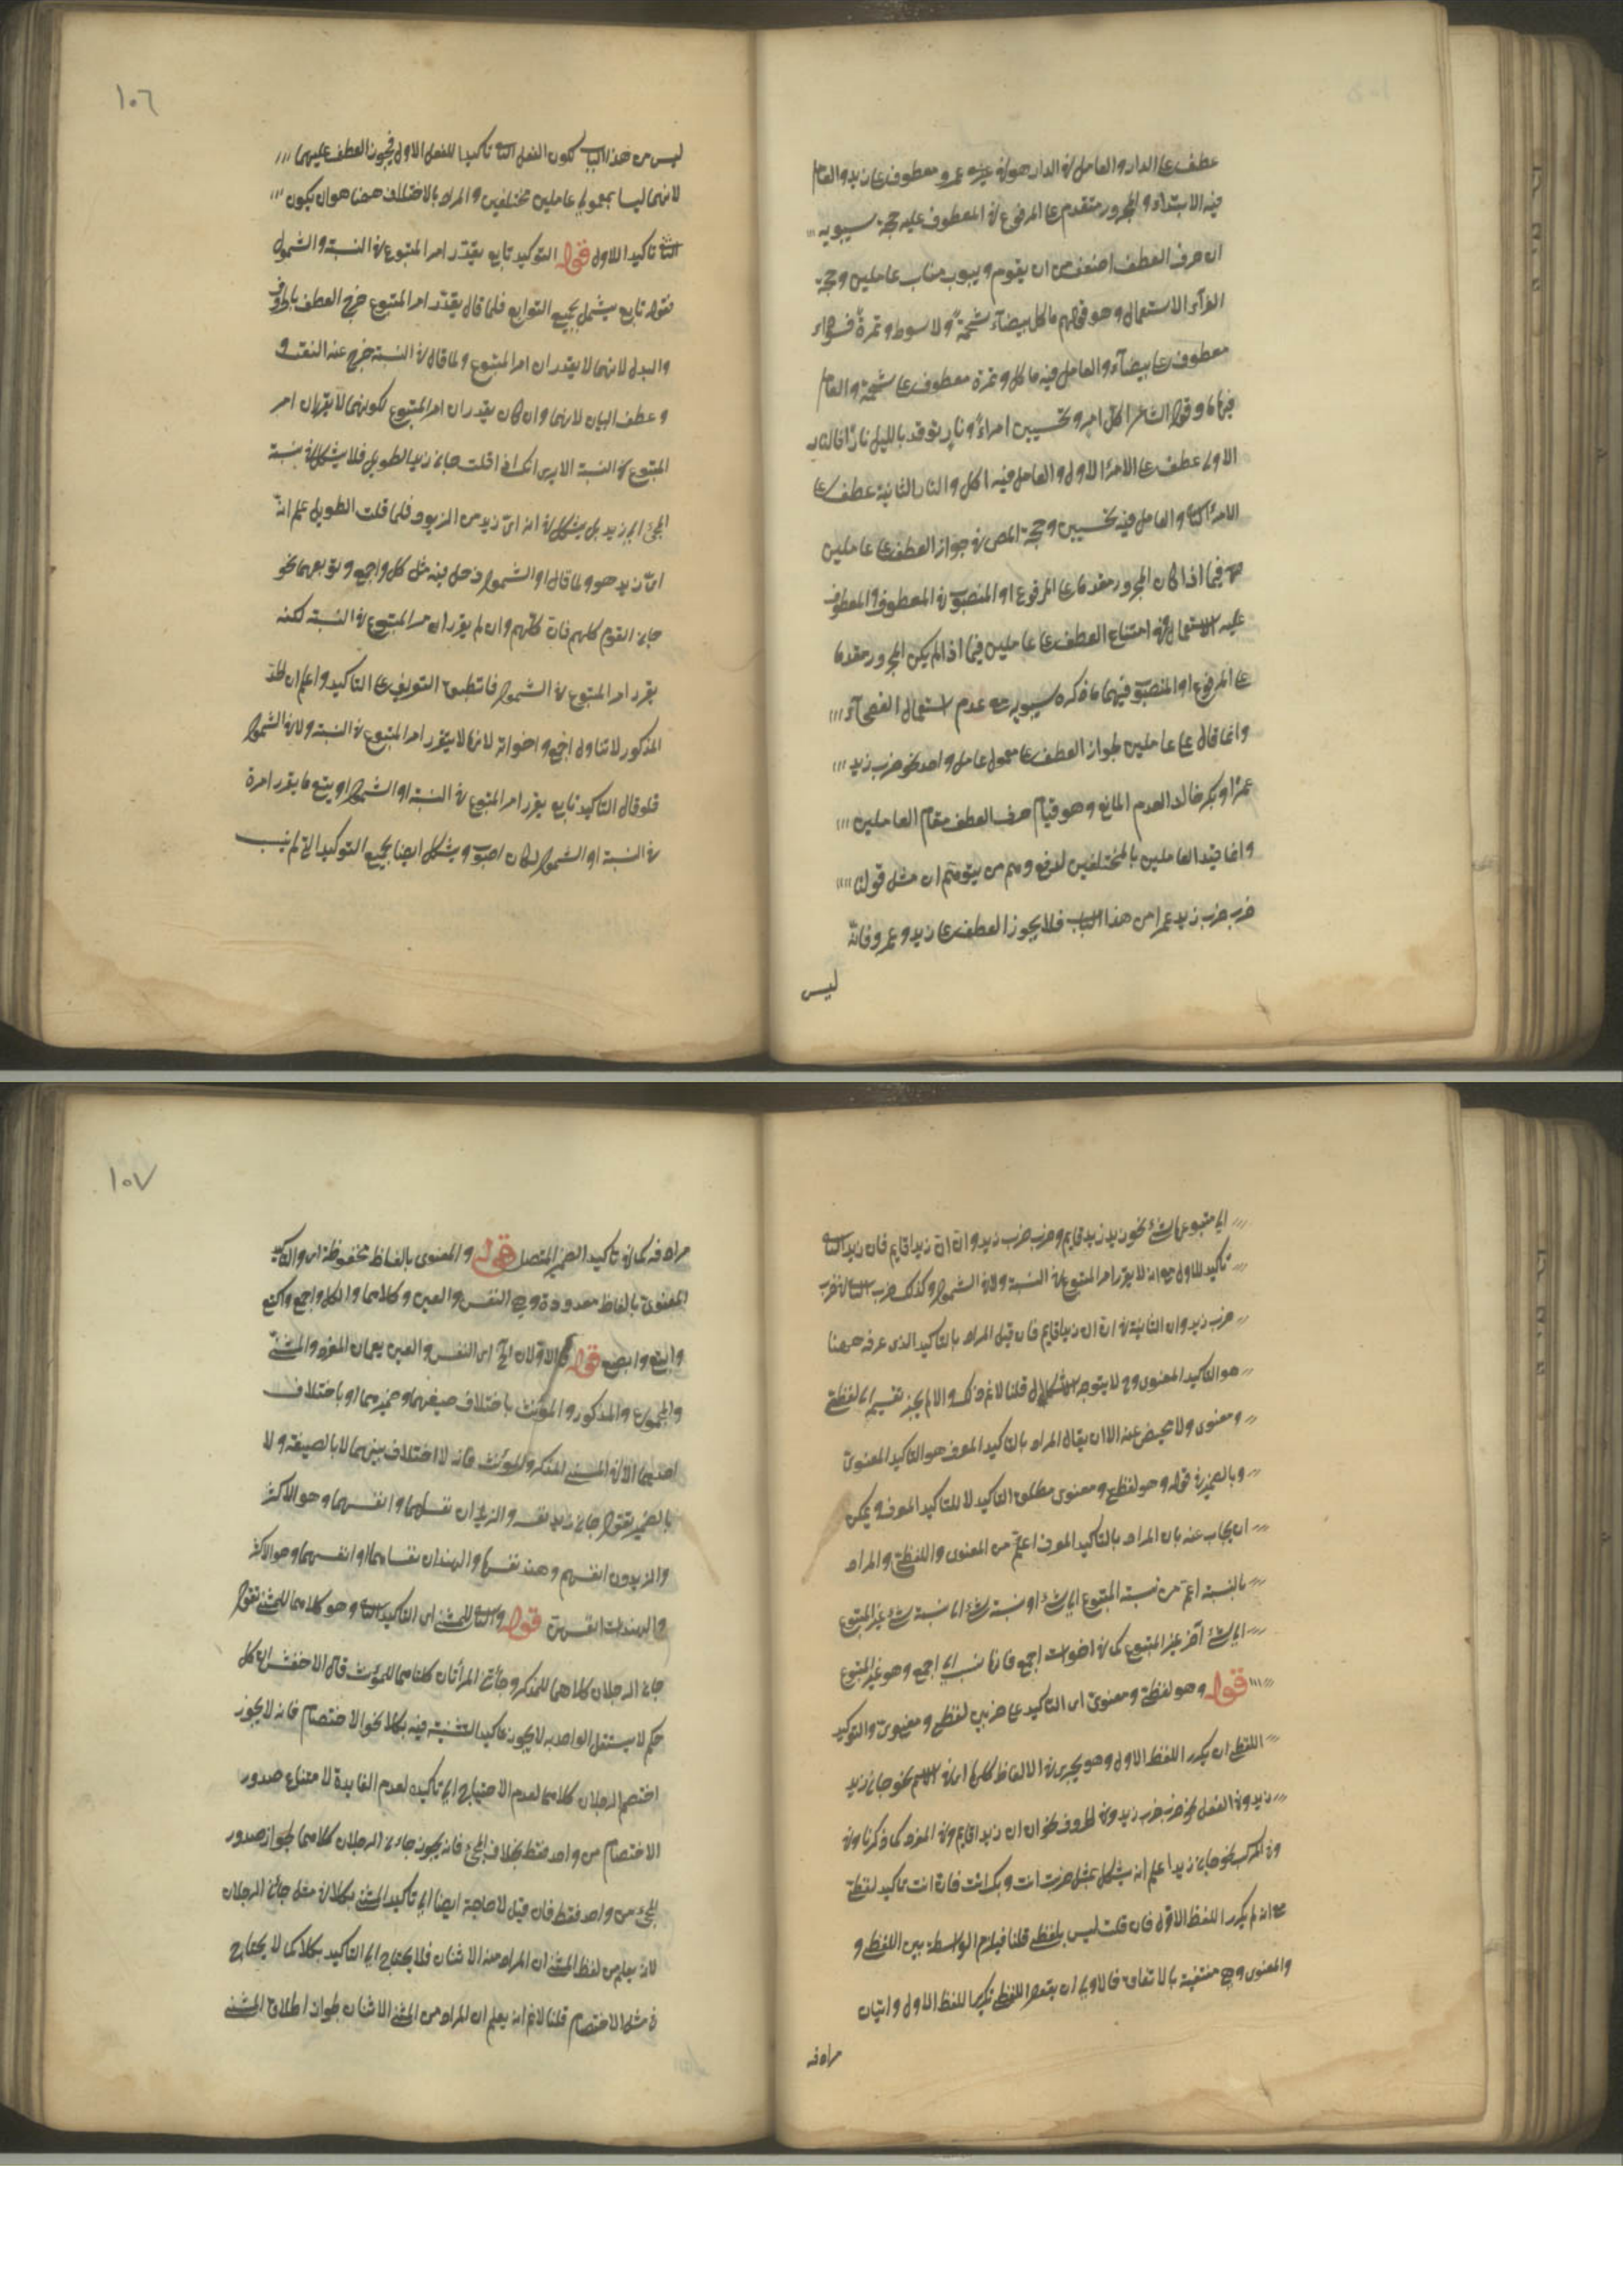 عطف على الدار والعامل في الدار هو في وغيره عمرو معطوف على زيد والعامل
فيه الابتداء والمجرور متقدم على المرفوع في المعطوف عليه حجة سيبويه
ان حرف العطف اضعف من ان يقوم وينوب مناب عاملين وحجة
الفرآء الاستعمال وهو قولهم ما كل بيضآء شحمة ولا سوداء تمرة فسوداء
معطوف على بيضآء والعامل فيه ما كل وتمرة معطوف على شحمة والعامل
فيها ما وقول الشاعر اكل امرء تحسبين امراءً ونارٍ توقد بالليل نارًا فالنار
الاولى عطف على الامرء الاول والعامل فيه اكل والنار الثانية عطف على
الامرء الثاني والعامل فيه تحسبين وحجة المص في جواز العطف على عاملين
فيما اذا كان المجرور مقدما على المرفوع او المنصوب في المعطوف والمعطوف
عليه الاستعمال وفي امتناع العطف على عاملين فيما اذا لم يكن المجرور مقدما
على المرفوع او المنصوب فيهما ما ذكره سيبويه مع عدم استعمال الفصحآء
وانما قال على عاملين لجواز العطف على معمول عامل واحد نحو ضرب زيد
عمرًا وبكر خالدا لعدم المانع وهو قيام حرف العطف مقام العاملين
وانما قيد العاملين بالمختلفين لدفع وهم من يتوهم ان مثل قولنا
ضرب ضرب زيد عمرا من هذا الباب فلا يجوز العطف على زيد وعمرو فانه
ليس
١٠٦
ليس من هذا الباب لكون الفعل الثاني تأكيدا للفعل الاول فيجوز العطف عليهما
لانهما ليسا بمعمولي عاملين مختلفين والمراد بالاختلاف ههنا هو ان يكون
الثاني تاكيدا للاول قوله التوكيد تابع يقرر امر المتبوع في النسبة والشمول
فقوله تابع يشمل جميع التوابع فلما قال يقرر امر المتبوع خرج العطف بالحروف
والبدل لانهما لا يقرران امر المتبوع ولما قال في النسبة خرج عنه النعت و
وعطف البيان لانهما وان كان يقرران امر المتبوع لكونهما لا يقرران امر
المتبوع في النسبة الا يرى انك اذا قلت جاءني زيد الطويل فلا يشكل في نسبة
المجئ الى زيد بل يشكل في انه ايّ زيد من الزيود فلما قلت الطويل علم انه
ايّ زيد هو ولما قال او الشمول دخل فيه مثل كل واجمع وتوابعهما نحو
جاءني القوم كلهم فان كلهم وان لم يقرر امر المتبوع في النسبة لكنه
يقرر امر المتبوع في الشمول فانطبق التعريف على التاكيد واعلم ان الحد
المذكور لا يتناول اجمع واخواته لانها لا يقرر امر المتبوع في النسبة ولا في الشمول
فلو قال التاكيد تابع يقرر امر المتبوع في النسبة او الشمول او يتبع ما يقرر امره
في النسبة او الشمول لكان اصوب ويشكل ايضا بجميع التوكيد التي لم ينسب
الى متبوعها شئ نحو زيد زيد قايم وضرب ضرب زيد وان ان زيدا قايم فان زيد الثاني
تأكيد للاول مع انه لا يقرر امر المتبوع في النسبة ولا في الشمول وكذلك ضرب الثاني في ضرب
ضرب زيد وان الثانية في ان ان زيدا قايم فان قيل المراد بالتاكيد الذى عرفه ههنا
هو التاكيد المعنوى وح لا يتوجه الاشكال قلنا لا نم ذلك والا لم يجز تقسيمه الى لفظي
ومعنوى ولا محيص عنه الا ان يقال المراد بالتاكيد المعرف هو التاكيد المعنوى
وبالضمير في قوله وهو لفظي ومعنوى مطلق التاكيد لا للتاكيد المعرف ويمكن
ان يجاب عنه بان المراد بالتاكيد المعرف اعم من المعنوى واللفظي والمراد
بالنسبة اعم من نسبة المتبوع الى شئ او نسبة شئ الى نسبة شئ غير المتبوع
الى شئ آخر غير المتبوع كما في اخوات اجمع فانها نسب الى اجمع وهو غير المتبوع
قوله وهو لفظي ومعنوي اى التاكيد على ضربين لفظي ومعنوي والتوكيد
اللفظي ان يكرر اللفظ الاول وهو يجرى في الالفاظ كلها اى في الاسم نحو جاءني زيد
زيد وفي الفعل نحو ضرب ضرب زيد وفي الحروف نحو ان ان زيدا قايم وفي المفرد كما ذكرنا وفي
وفي المركب نحو جاءني زيد اعلم انه يشكل بمثل ضربت انت وبك انت فان انت تاكيد لفظي
مع انه لم يكرر اللفظ الاول فان قلت ليس بلفظي قلنا فيلزم الواسطة بين اللفظي و
والمعنوى وهي منتفية بالاتفاق فالاولى ان يقال اللفظي تكرير اللفظ الاول واتيان
مرادفه
١٠٧
مرادفه كما في تاكيد الضمير المتصل قوله والمعنوى بالفاظ محفوظة اى والتاكيد
المعنوى بالفاظ معدودة وهي النفس والعين وكلاهما والكل واجمع واكتع
وابتع وابصع قوله فالاولان الخ اى النفس والعين يعمان المفرد والمثنى
والمجموع والمذكور والمؤنث باختلاف صيغهما وضميرهما او باختلاف
احديهما الا في المثنى المذكر والمؤنث فانه لا اختلاف بينهما لا بالصيغة ولا
بالضمير تقول جاءني زيد نفسه والزيدان نفساهما وانفسهما وهو الاكثر
والزيدون انفسهم وهند نفسها والهندان نفساهما او انفسهما وهو الاكثر
والهندات انفسهن قوله والثاني للمثنى اى التاكيد الثاني وهو كلاهما للمثنى تقول
جاءني الرجلان كلاهما للمذكر وجأتني المرأتان كلتاهما للمؤنث قال الاخفش ان كل
حكم لا يستقل الواحد به لا يجوز تاكيد التثنية فيه بكلا نحو الاختصام فانه لا يجوز
اختصم الرجلان كلاهما لعدم الاحتياج الى تاكيده لعدم الفايدة لامتناع صدور
الاختصام من واحد فقط بخلاف المجئ فانه يجوز جاءني الرجلان كلاهما لجواز صدور
المجئ من واحد فقط فان قيل لا حاجة ايضا الى تاكيد المثنى بكلا في مثل جاءني الرجلان
لانه يعلم من لفظ المثنى ان المراد منه الاثنان فلا يحتاج الى التاكيد بكلا كما لا يحتاج
في مثل الاختصام قلنا لا نم انه يعلم ان المراد من المثنى الاثنان لجواز اطلاق المثنى